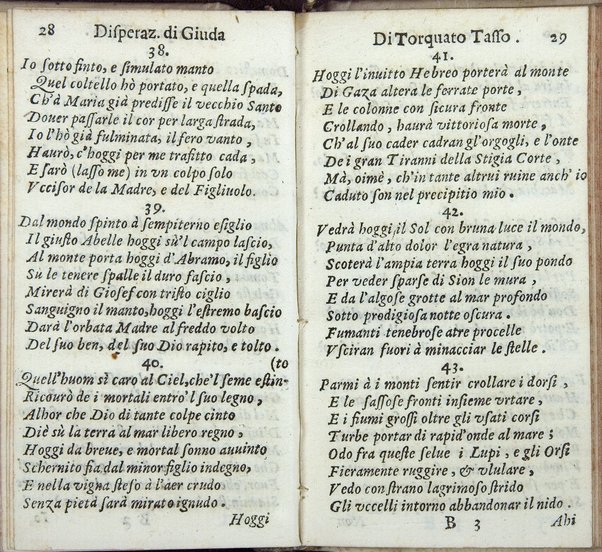 28 Disperaz. di Giuda
38.
Io ſotto finto, e ſimulato manto
Quel coltello hò portato, e quella ſpada,
Ch'à Maria già prediſſe il vecchio Santo
Douer paſſarle il cor per larga ſtrada,
Io l'hò già fulminata, il fero vanto,
Haurò, c'hoggi per me trafitto cada,
E ſarò (laſſo me) in vn colpo ſolo
Vcciſor de la Madre, e del Figliuolo.
39.
Dal mondo ſpinto à ſempiterno eſiglio
Il giuſto Abelle hoggi sù'l campo laſcio,
Al monte porta hoggi d'Abramo, il figlio
Sù le tenere ſpalle il duro faſcio,
Mirerà di Gioſef con triſto ciglio
Sanguigno il manto, hoggi l'eſtremo baſcio
Darà l'orbata Madre al freddo volto
Del ſuo ben, del ſuo Dio rapito, e tolto.
40. (to
Quell'huom sì caro al Ciel, che'l ſeme eſtin-
Ricourò de i mortali entro'l ſuo legno,
Alhor che Dio di tante colpe cinto
Diè sù la terra al mar libero regno,
Hoggi da breue, e mortal ſonno auuinto
Schernito fia dal minor figlio indegno,
E nella vigna ſteſo à l'aer crudo
Senza pietà ſarà mirato ignudo.
Hoggi
Di Torquato Taſſo. 29
41.
Hoggi l'inuitto Hebreo porterà al monte
Di Gaza altera le ferrate porte,
E le colonne con ſicura fronte
Crollando, haurà vittorioſa morte,
Ch'al ſuo cader cadran gl'orgogli, e l'onte
De i gran Tiranni della Stigia Corte,
Mà, oimè, ch'in tante altrui ruine anch'io
Caduto ſon nel precipitio mio.
42.
Vedrà hoggi il Sol con bruna luce il mondo,
Punta d'alto dolor l'egra natura,
Scoterà l'ampia terra hoggi il ſuo pondo
Per veder ſparſe di Sion le mura,
E da l'algoſe grotte al mar profondo
Sotto prodigioſa notte oſcura.
Fumanti tenebroſe atre procelle
Vſciran fuori à minacciar le ſtelle.
43.
Parmi à i monti ſentir crollare i dorſi,
E le ſaſſoſe fronti inſieme vrtare,
E i fiumi groſſi oltre gli vſati corſi
Turbe portar di rapid'onde al mare;
Odo fra queſte ſelue i Lupi, e gli Orſi
Fieramente ruggire, & vlulare,
Vedo con ſtrano lagrimoſo ſtrido
Gli vccelli intorno abbandonar il nido.
B 3 Ahi